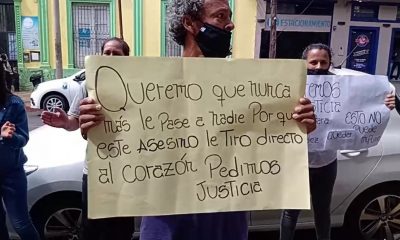 ESTACIONAMIENTO
Queremo que nunca
más le Pase a nadie Por que
este Asesino le Tiro directo
al corazón Pedimos
JUSTICIA
ESTO NO
Puede
Queda